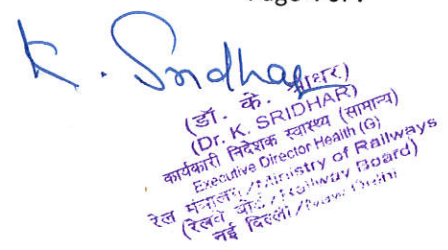 K. Sridhar
(डॉ. के. श्रीधर)
(Dr. K. SRIDHAR)
कार्यकारी निदेशक स्वास्थ्य (सामान्य)
Executive Director Health (G)
रेल मंत्रालय/Ministry of Railways
(रेलवे बोर्ड/Railway Board)
नई दिल्ली/New Delhi